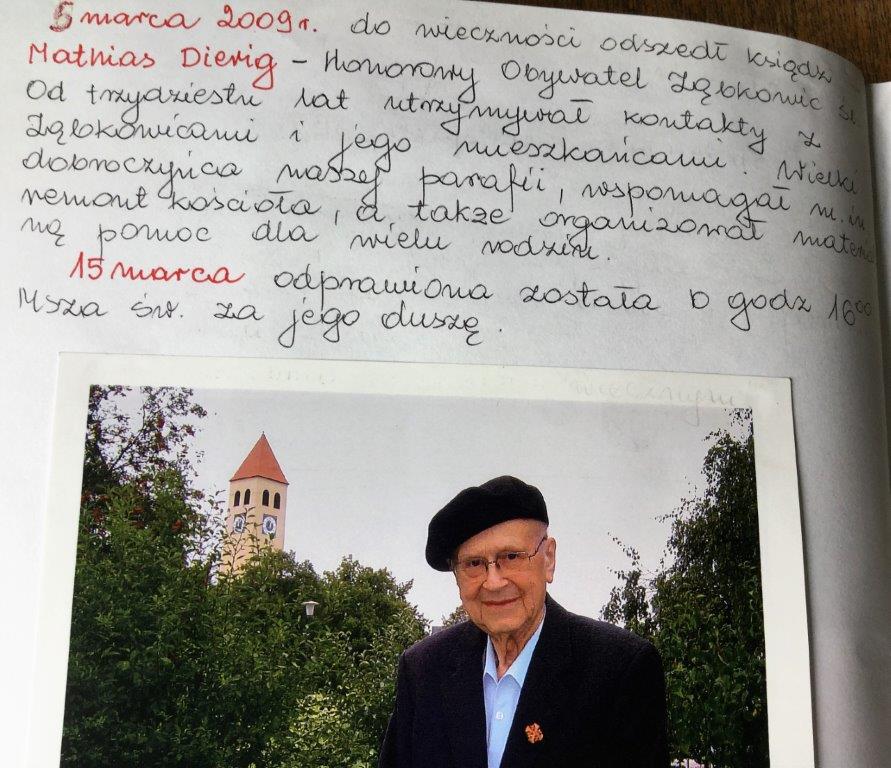 5 marca 2009 r. do wieczności odszedł ksiądz
Mathias Dierig – Honorowy Obywatel Ząbkowic Śl.
Od trzydziestu lat utrzymywał kontakty z
Ząbkowicami i jego mieszkańcami. Wielki
dobroczyńca naszej parafii, wspomagał m.in
remont kościoła, a także organizował materi
ną pomoc dla wielu rodzin.
15 marca odprawiona została o godz 16⁰⁰
Msza św. za jego duszę.